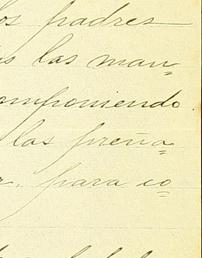 os padres
s las man=
omponiendo
las preña=
para co=